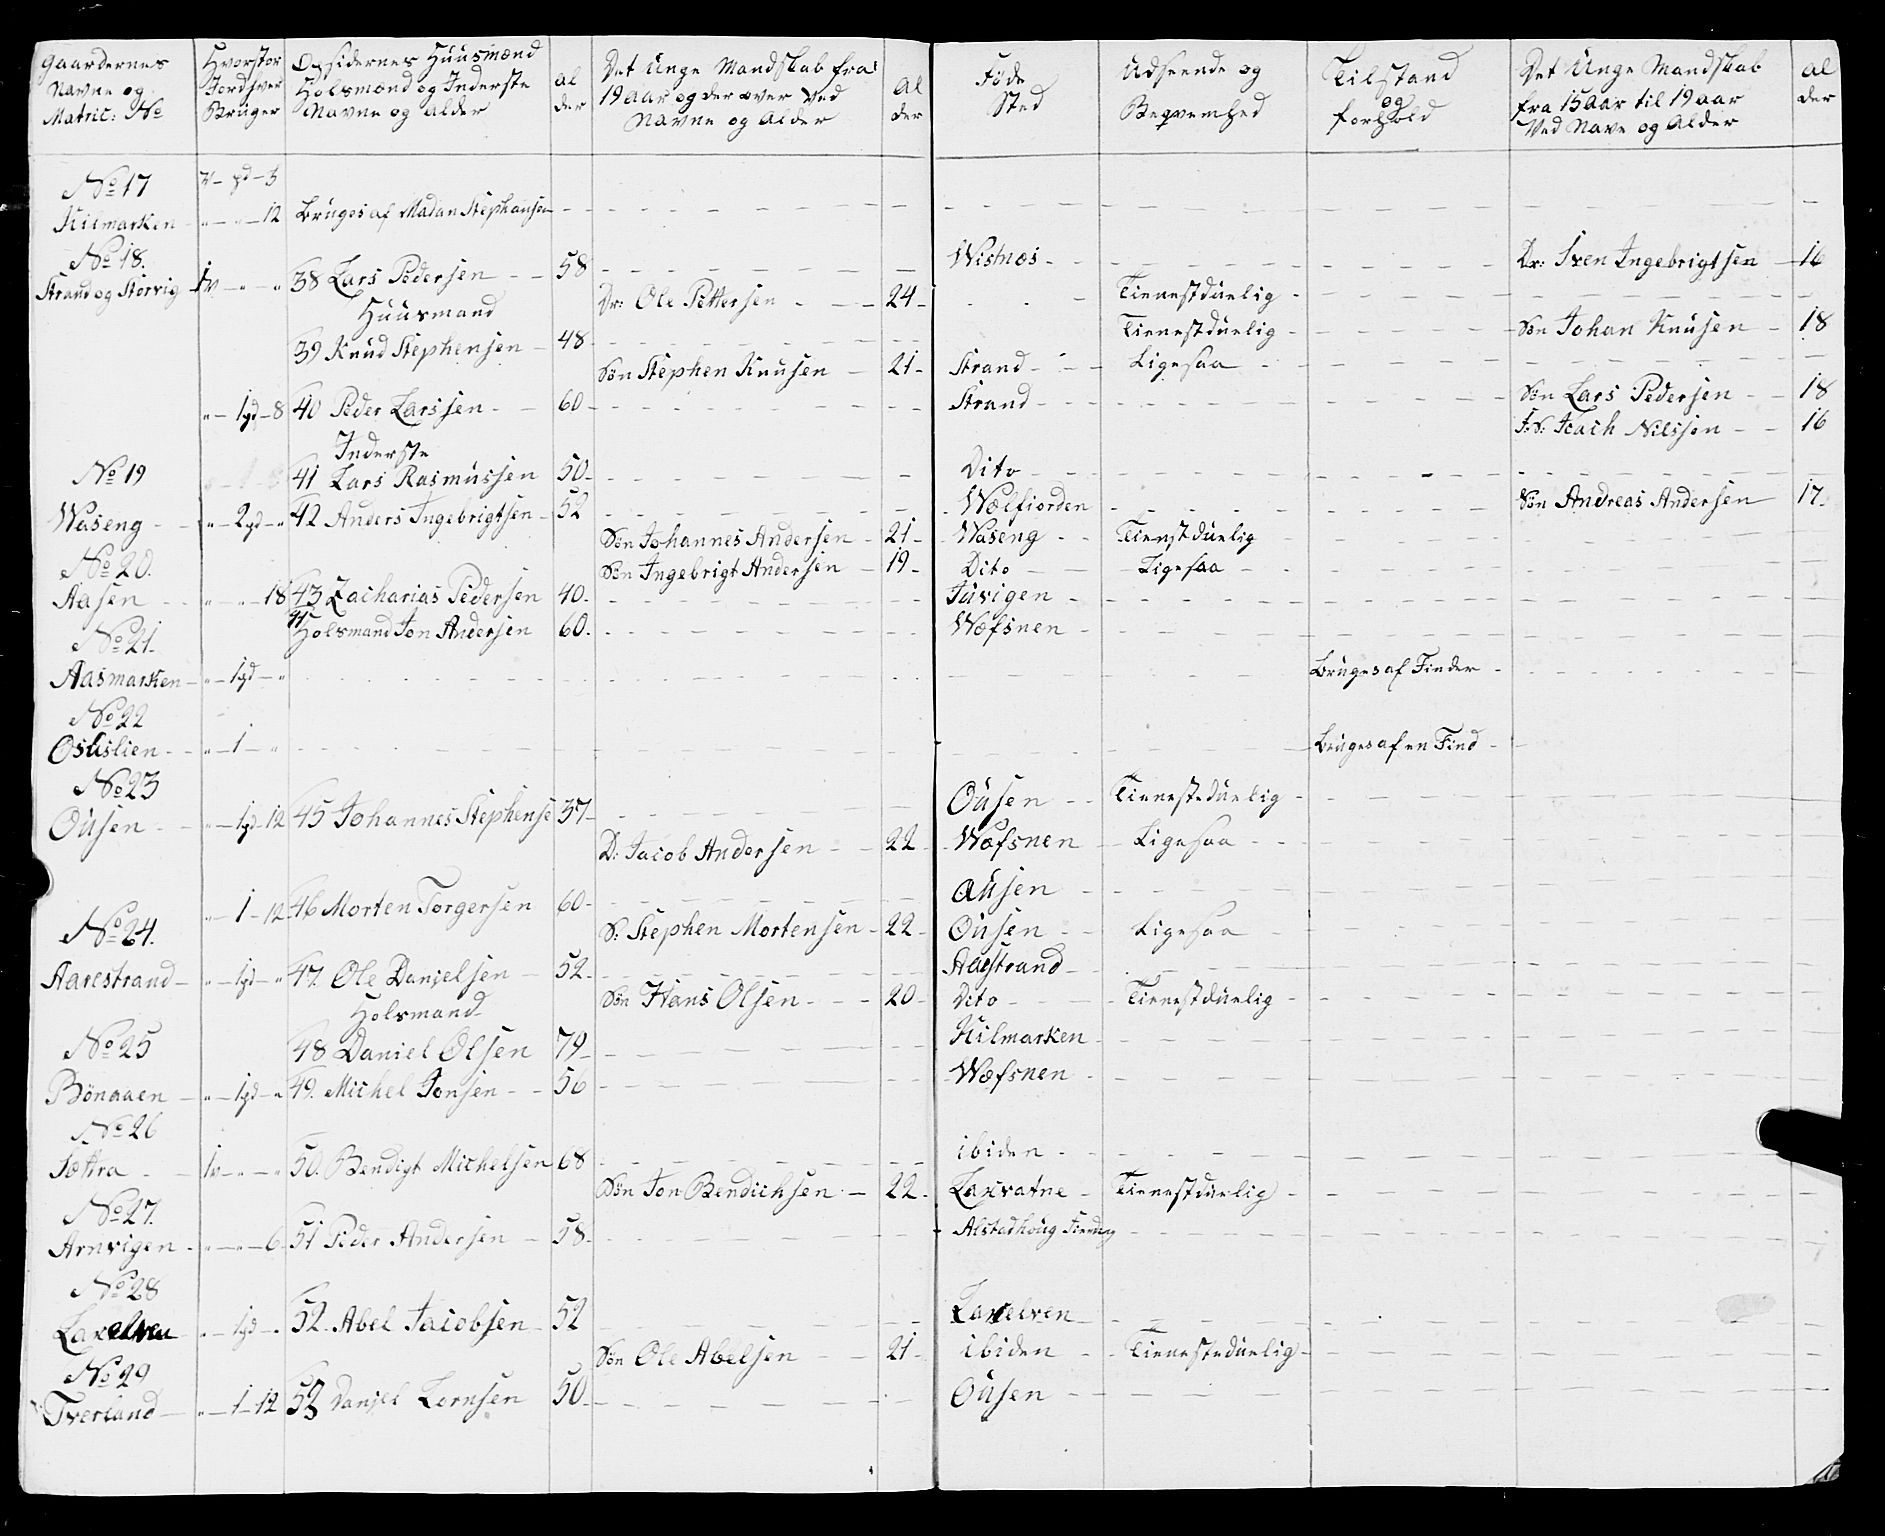 Gaardernes Navne og Matric: No | Hvorstor Jordhver Brúger | Opsidernes Húúsmænd Holsmænd og Inderste Navne og alder | al der | Det Unge Mandskab fra 19 aar og der over Ved Navne og Alder | Al der | Føde Sted | Udseende og Beqvemhed | Tilstand og forhold | Det Unge Mandskab fra 15 aar til 19 aar Ved Navn og Alder | al der
No 17
Hilmarken - " - " - 12 Brúges af Madan Stephansen
No 18.
Strand og Storvig 1v - " - " 38 Lars Pedersen - - 58 Wistnæs - Dr: Sven Ingebrigtsen - 16
Húúsmand Dr: Ole Pettersen - - - 24 - Tienestdúelig -
39 Knúd Stephensen - 48 - Tienestdúelig - Søn Johan Knúsen - 18
Søn Stephen Knúsen - 21 - Strand - - - Ligesaa
" - 1pd - 8 40 Peder Larssen - - 60 - Strand - Søn Lars Pedersen - - 18
Inderste Nilssen - - 16
No 19 41 Lars Rasmússen 50 - Dito
Waseng - - " - 2pd - " 42 Anders Ingebrigtsen - 52 Wælfiorden Søn Andreas Andersen 17
Søn Johannes Andersen - 21 - Waseng - - Tienstdúelig
No 20. Søn Ingebrigt Andersen - 19 - Dito - Ligesaa -
Aasen - - " - " - 18 43 Zacharias Pedersen 40 - Júvigen -
No 21. 44 Holsmand Jon Andersen 60. Wæfsnen -
Aasmarken - " - 1pd - " Brúges af Finder -
No 22
Osúslien - - " - 1 - " Brúges af en Find -
No 23
Oúsen - - " - 1pd - 12 45 Johannes Stephense 37 - Oúsen - - Tienestedúelig -
D: Jacob Andersen - - 22 - Wæfsnen - Ligesaa - -
" - 1 - 12 46 Morten Torgersen 60 - Oúsen -
No 24. S: Stephen Mortensen - 22 - Oúsen - - Ligesaa -
Aarestrand - " - 1pd - " 47. Ole Danjelsen - 52 - Aarstrand -
Holsmand Søn Hans Olsen - - - 20 - Dito - Tienestdúelig -
No 25 48 Daniel Olsen 79 - Hilmarken -
Bönaaen - " - 1pd - " 49. Michel Jonsen - - 56 Wæfsnen -
No 26
Sættra - - 1v - " - " 50. Bendigt Michelsen 68 ibiden -
Søn Jon Bendichsen - 22 - Laxvatne - Tienestdúelig -
No 27.
Arnvigen - " - " - 6 51 Peder Andersen - 58 - Alstadhoúg
No 28
Laxelven " - 1pd - " 52. Abel Jacobsen - 52 Laxelven -
Søn Ole Abelsen - - 21 - ibiden - - Tienestedúelig -
No 29
Tverland - " - 1 - 12 53 Danjel Lornsen 50 - Oúsen - -